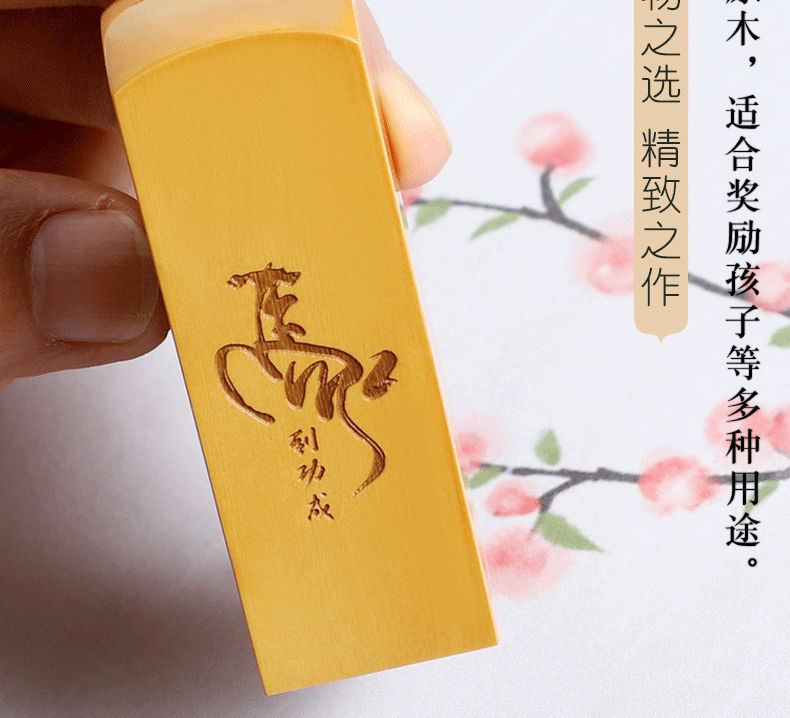 木，适合奖励孩子等多种用途。
物之选 精致之作
馬
到功成